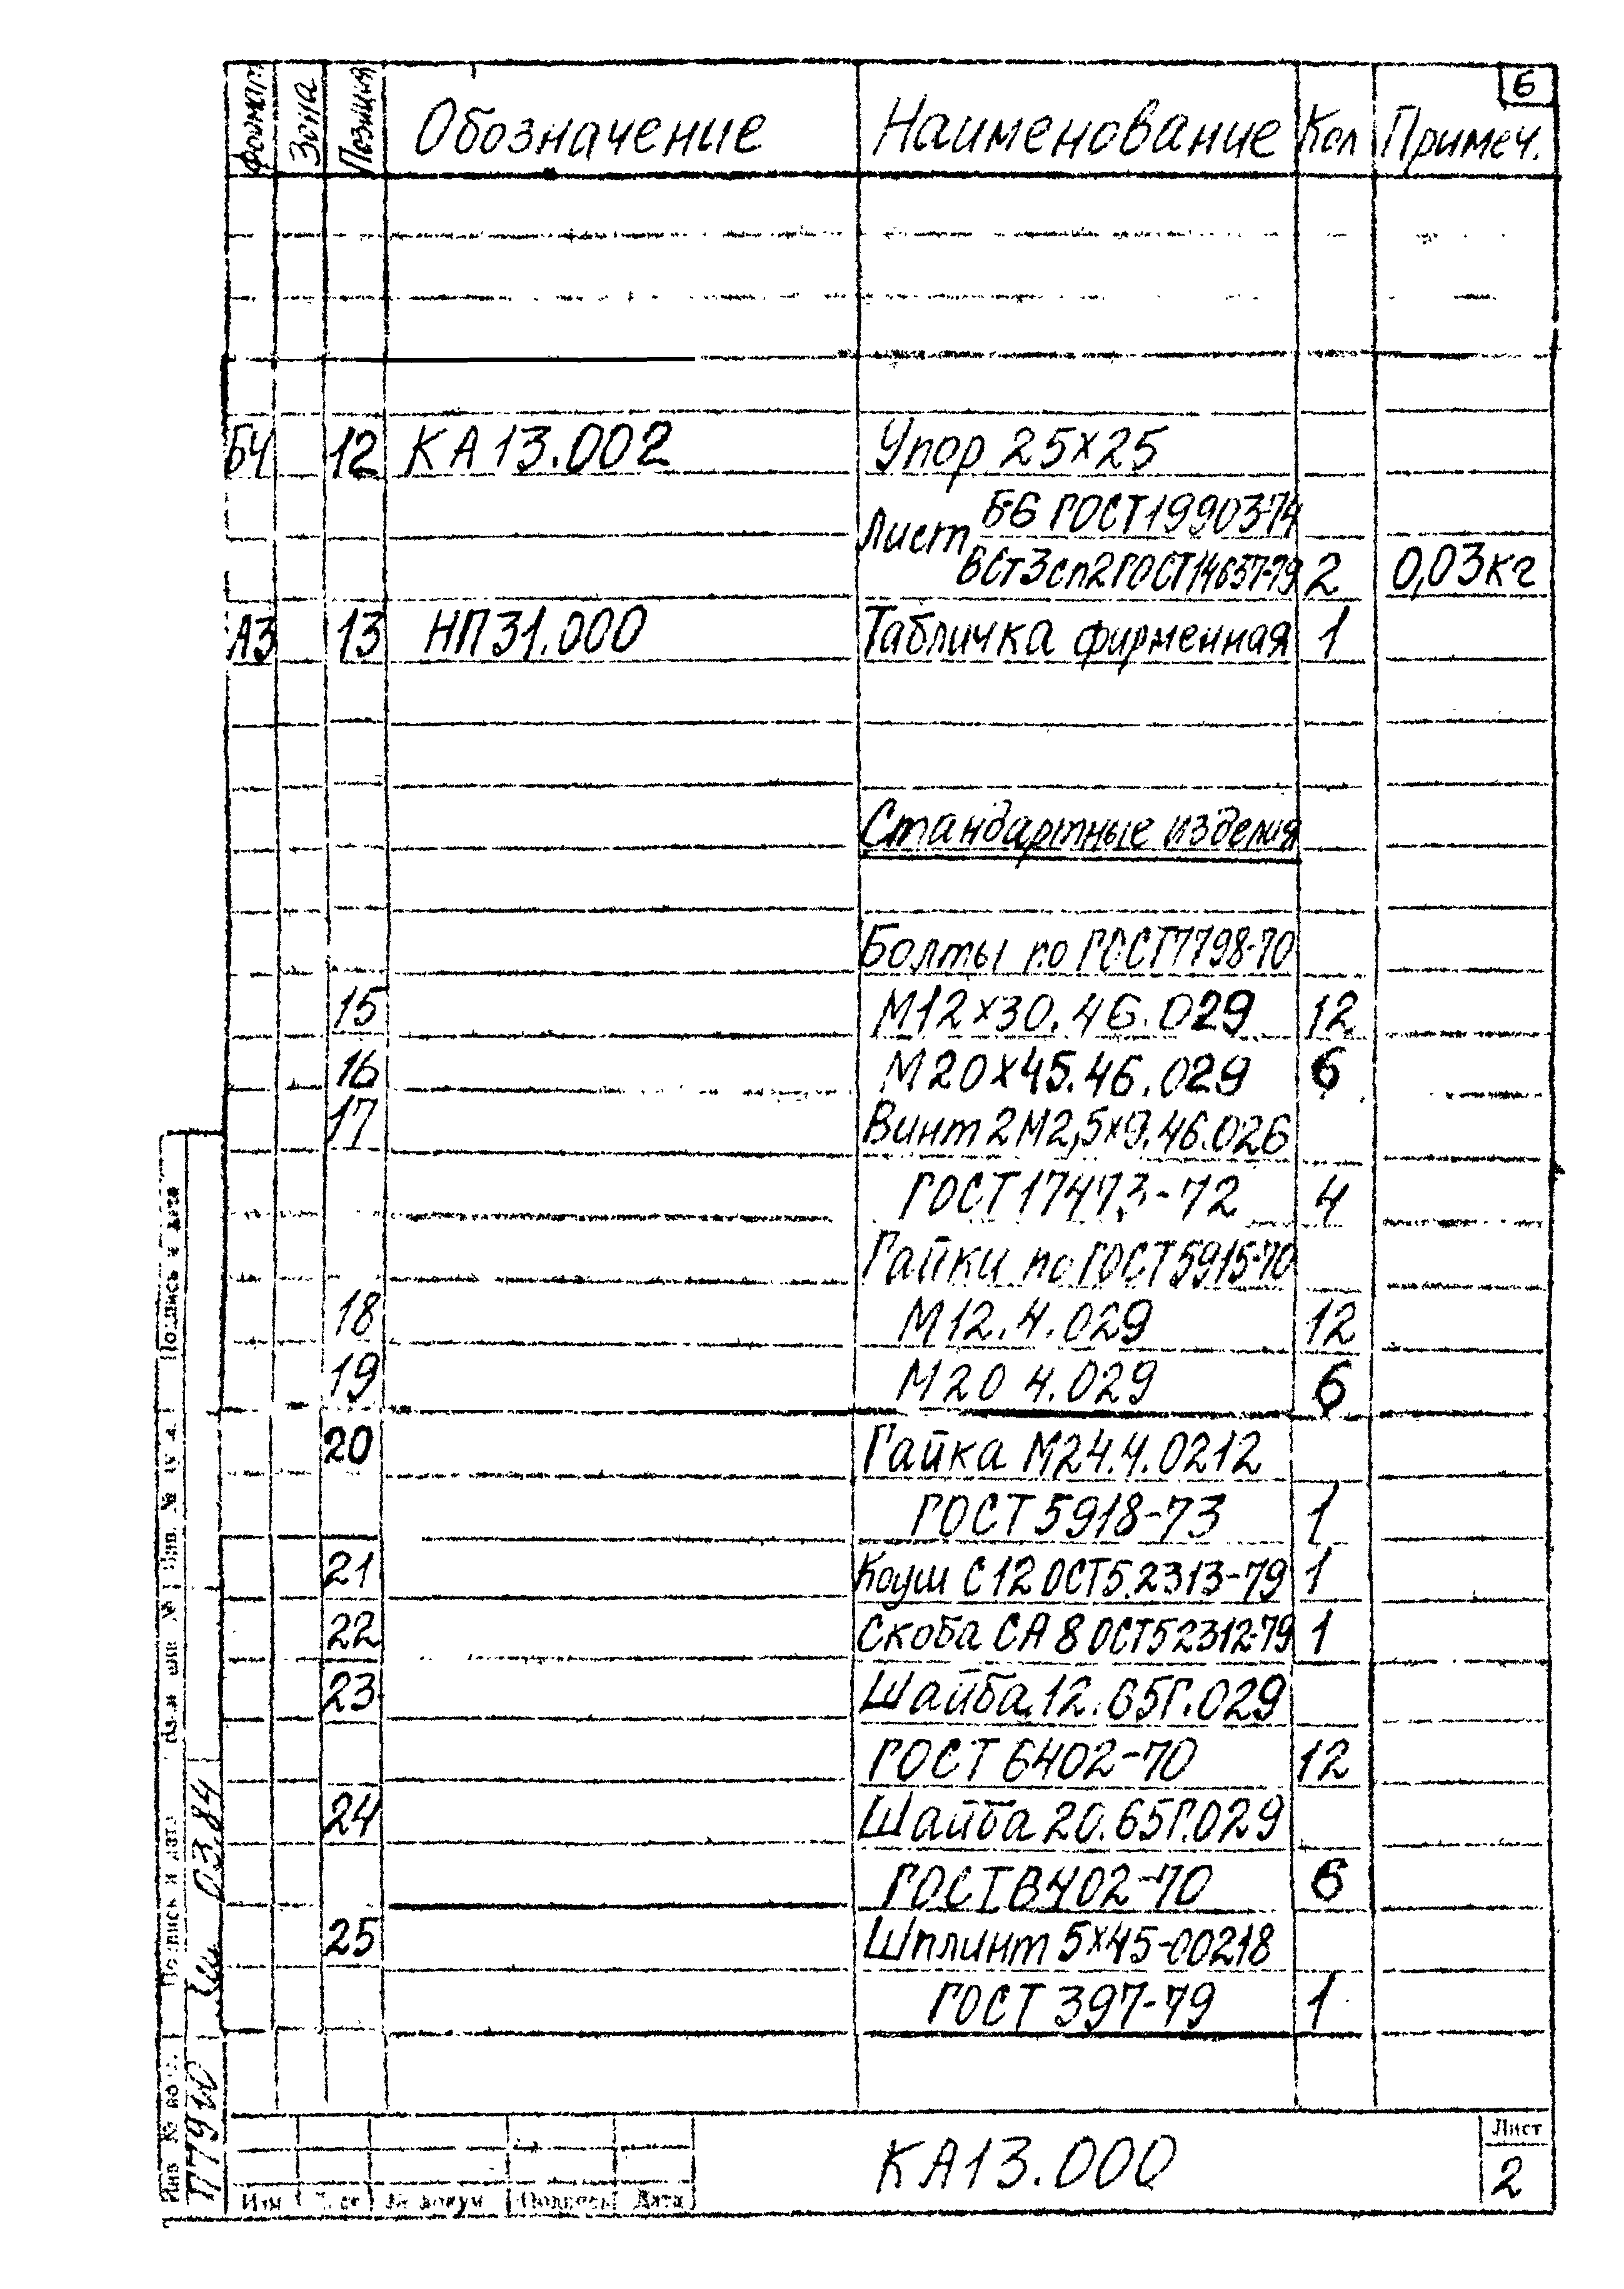 6
Формат Зона Позиция Обозначение Наименование Кол Примеч.
БЧ 12 КА13.002 Упор 25х25
Лист Б6 ГОСТ19903-74
ВСт3сп2ГОСТ14637-79 2 0,03кг
А3 13 НП31.000 Табличка фирменная 1
Стандартные изделия
Болты по ГОСТ7798-70
15 М12х30.46.029 12
16 М20х45.46.029 6
17 Винт 2М2,5х9.46.026
ГОСТ17473-72 4
Гайки по ГОСТ5915-70
18 М12.4.029 12
19 М20 4.029 6
20 Гайка М24.4.0212
ГОСТ5918-73 1
21 Коуш С12 ОСТ5.2313-79 1
22 Скоба СА 8 ОСТ5 2312-79 1
23 Шайба 12.65Г.029
ГОСТ 6402-70 12
24 Шайба 20.65Г.029
ГОСТ 6402-70 6
25 Шплинт 5х45-00218
ГОСТ 397-79 1
Подпись и дата
Взам инв №
Подпись и дата
03.84
Инв №
КА13.000
Лист
2
Изм Лист № докум Подпись Дата